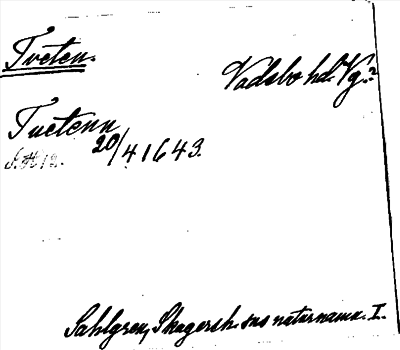 Tveten.
Vadsbo hd. Vg.?
Tuetenn
20/4 1643.
Sahlgren, Skagersh. sns naturnamn. I.